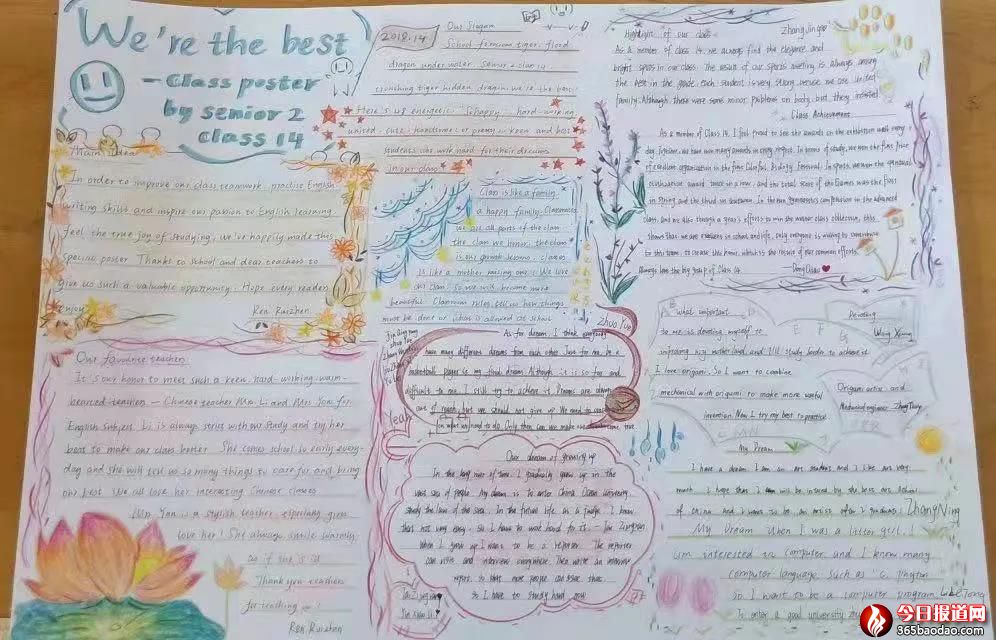 We're the best
— Class poster
by senior 2
class 14
Main idea
In order to improve our class teamwork, practise English
writing skills and inspire our passion to English learning
feel the true joy of studying, we've happily made this
special poster Thanks to School and dear teachers to
give us such a valuable opportunity. Hope every reader
enjoy
Ren Ruizhen
Our favorite teacher
It's our honor to meet such a keen, hard-working, warm-
hearted teacher — Chinese teacher Mrs. Li and Mrs Yan for
English Subject. Li is always strict with our study and try her
best to make our class better. She comes school so early every-
day and she will tell us so many things to care for and bring
our best We all love her interesting Chinese classes
Mrs. Yan is a stylish teacher, especially
love her! She always smile warmly
as if she is sa
Thank you teachers
for teaching us!
Ren Ruizhen
2018.14
Our Slogan
School
dragon under water Senior 2 class 14
crouching tiger hidden dragon we're the best!
Here's us energetic, happy, hard-working
united, cute, handsome or pretty, keen and best
students who work hard for their dreams
in our class
Class is like a family
a happy family. Classmates
we are all parts of the class
the class we honor, the class
is our growth lesson, classes
is like a mother raising one. We love
our class. So we will become more
beautiful Classroom rules tell us how things
must be done or what is allowed at school
Zhuo Yue
As for dream, I think everybody
have many different dreams from each other. Just for me, be a
basketball player is my final dream. Although it is so far and
difficult to me, I still try to achieve it. Dreams are always
out of reach, but we should not give up. We need to work
on what we need to do. Only then can we make our dreams come true
Yeah
Our dream of growing up
In the long river of time, I gradually grew up in the
vast sea of people. My dream is to enter China Ocean University
study the law of the sea. In the future life as a judge. I know
that not very easy, so I have to work hard for it —
When I grow up I want to be a reporter. The reporter
can visits and interview everywhere Then write an interview
report, to lets more people can know that
so I have to study hard now
Highlight of our class
Zhang Jingbo
As a member of class 14, we always find the elegance and
bright spots in our class. The result of our sports meeting is always among
the best in the grade. Each student is very strong because we are united
family. Although there were some minor problems on body, but they insisted.
Class Achievement
As a member of Class 14, I feel proud to see the awards in the exhibition wall every
day. Together, we have won many awards in every respect. In terms of study, we won the first prize
of excellent organization in the first Colorful Biology Festival. In sports, we won the
award twice in a row, and the total score of the Games was the first
in Spring and the third in Autumn. In the
class, and we also through a year's efforts to win the honor class collective, this
shows that we are excellent in school and life, only everyone is willing to contribute
to this team, to create the honor, which is the result of our common efforts.
Always love the big group of Class 14.
What important
to me is devoting myself to
improving my motherland and I'll study harder to achieve it
I love origami. So I want to combine
mechanical with origami to make more useful
invention. Now I try my best to practice
Devoting
Origami artist and
Mechanical engineer
My Dream
I have a dream I am an art student and I like art very
much. I hope that I can will be
of china and I want to be an artist after I graduate
Zhong Ning
My Dream When I was a litter girl, I
am interested in computer and I knew many
computer language such as "C, phyton"
So I want to be a computer program
To enter a good university
今日报道网
365baodao.com